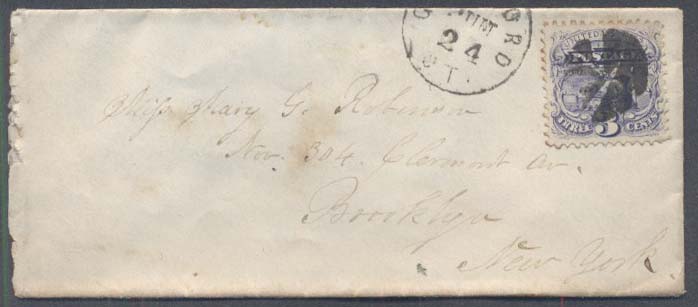 24
UNITED
POSTAGE
THREE 3 CENTS
Miss Mary G. Robinson
No. 304. Clermont Av.
Brooklyn
New York.